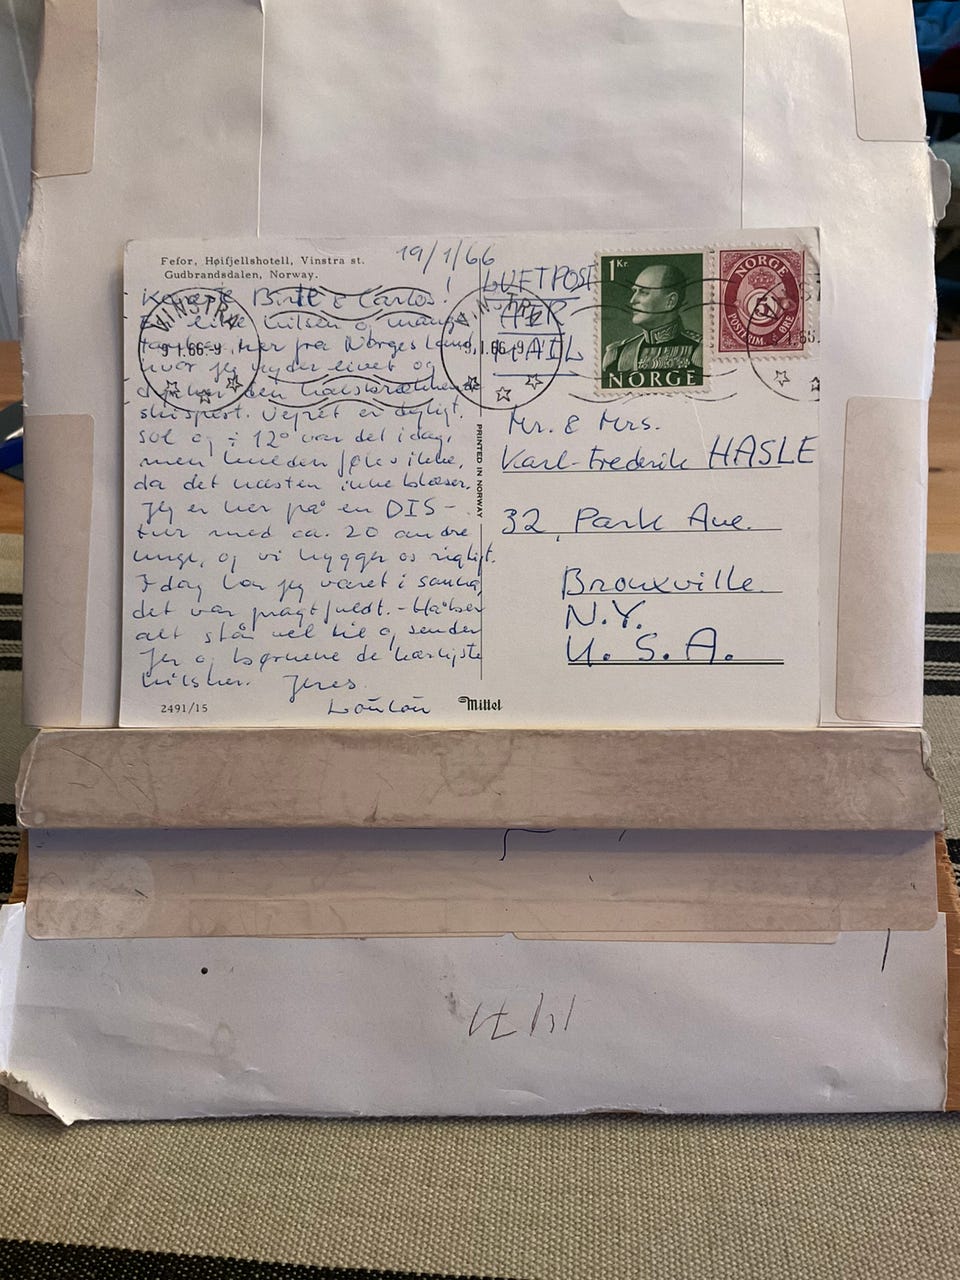 Fefor, Høifjellshotell, Vinstra st.
Gudbrandsdalen, Norway.
19/1/66
Kæreste Birte & Carlos!
En lille hilsen og mange
tanker her fra Norges land,
hvor jeg nyder livet og
dyrker den halsbrækkende
skisport. Vejret er dejligt,
sol og ÷ 12° var det i dag,
men kulden føles ikke,
da det næsten ikke blæser.
Jeg er her på en DIS-
tur med ca. 20 andre
unge, og vi hygger os rigtigt.
I dag har jeg været i sauna,
det var pragtfuldt. - Håber
alt står vel til og sender
Jer og børnene de kærligste
hilsner. Jeres
Loulou
2491/15
Mittet
PRINTED IN NORWAY
VINSTRA
9 1.66.-9
VINSTRA
9.1.66.-9
LUFTPOST
AIR
MAIL
1 Kr.
NORGE
NORGE
50
POSTFRIM. ØRE
Mr. & Mrs.
Karl-Frederik HASLE
32, Park Ave.
Bronxville
N.Y.
U. S. A.